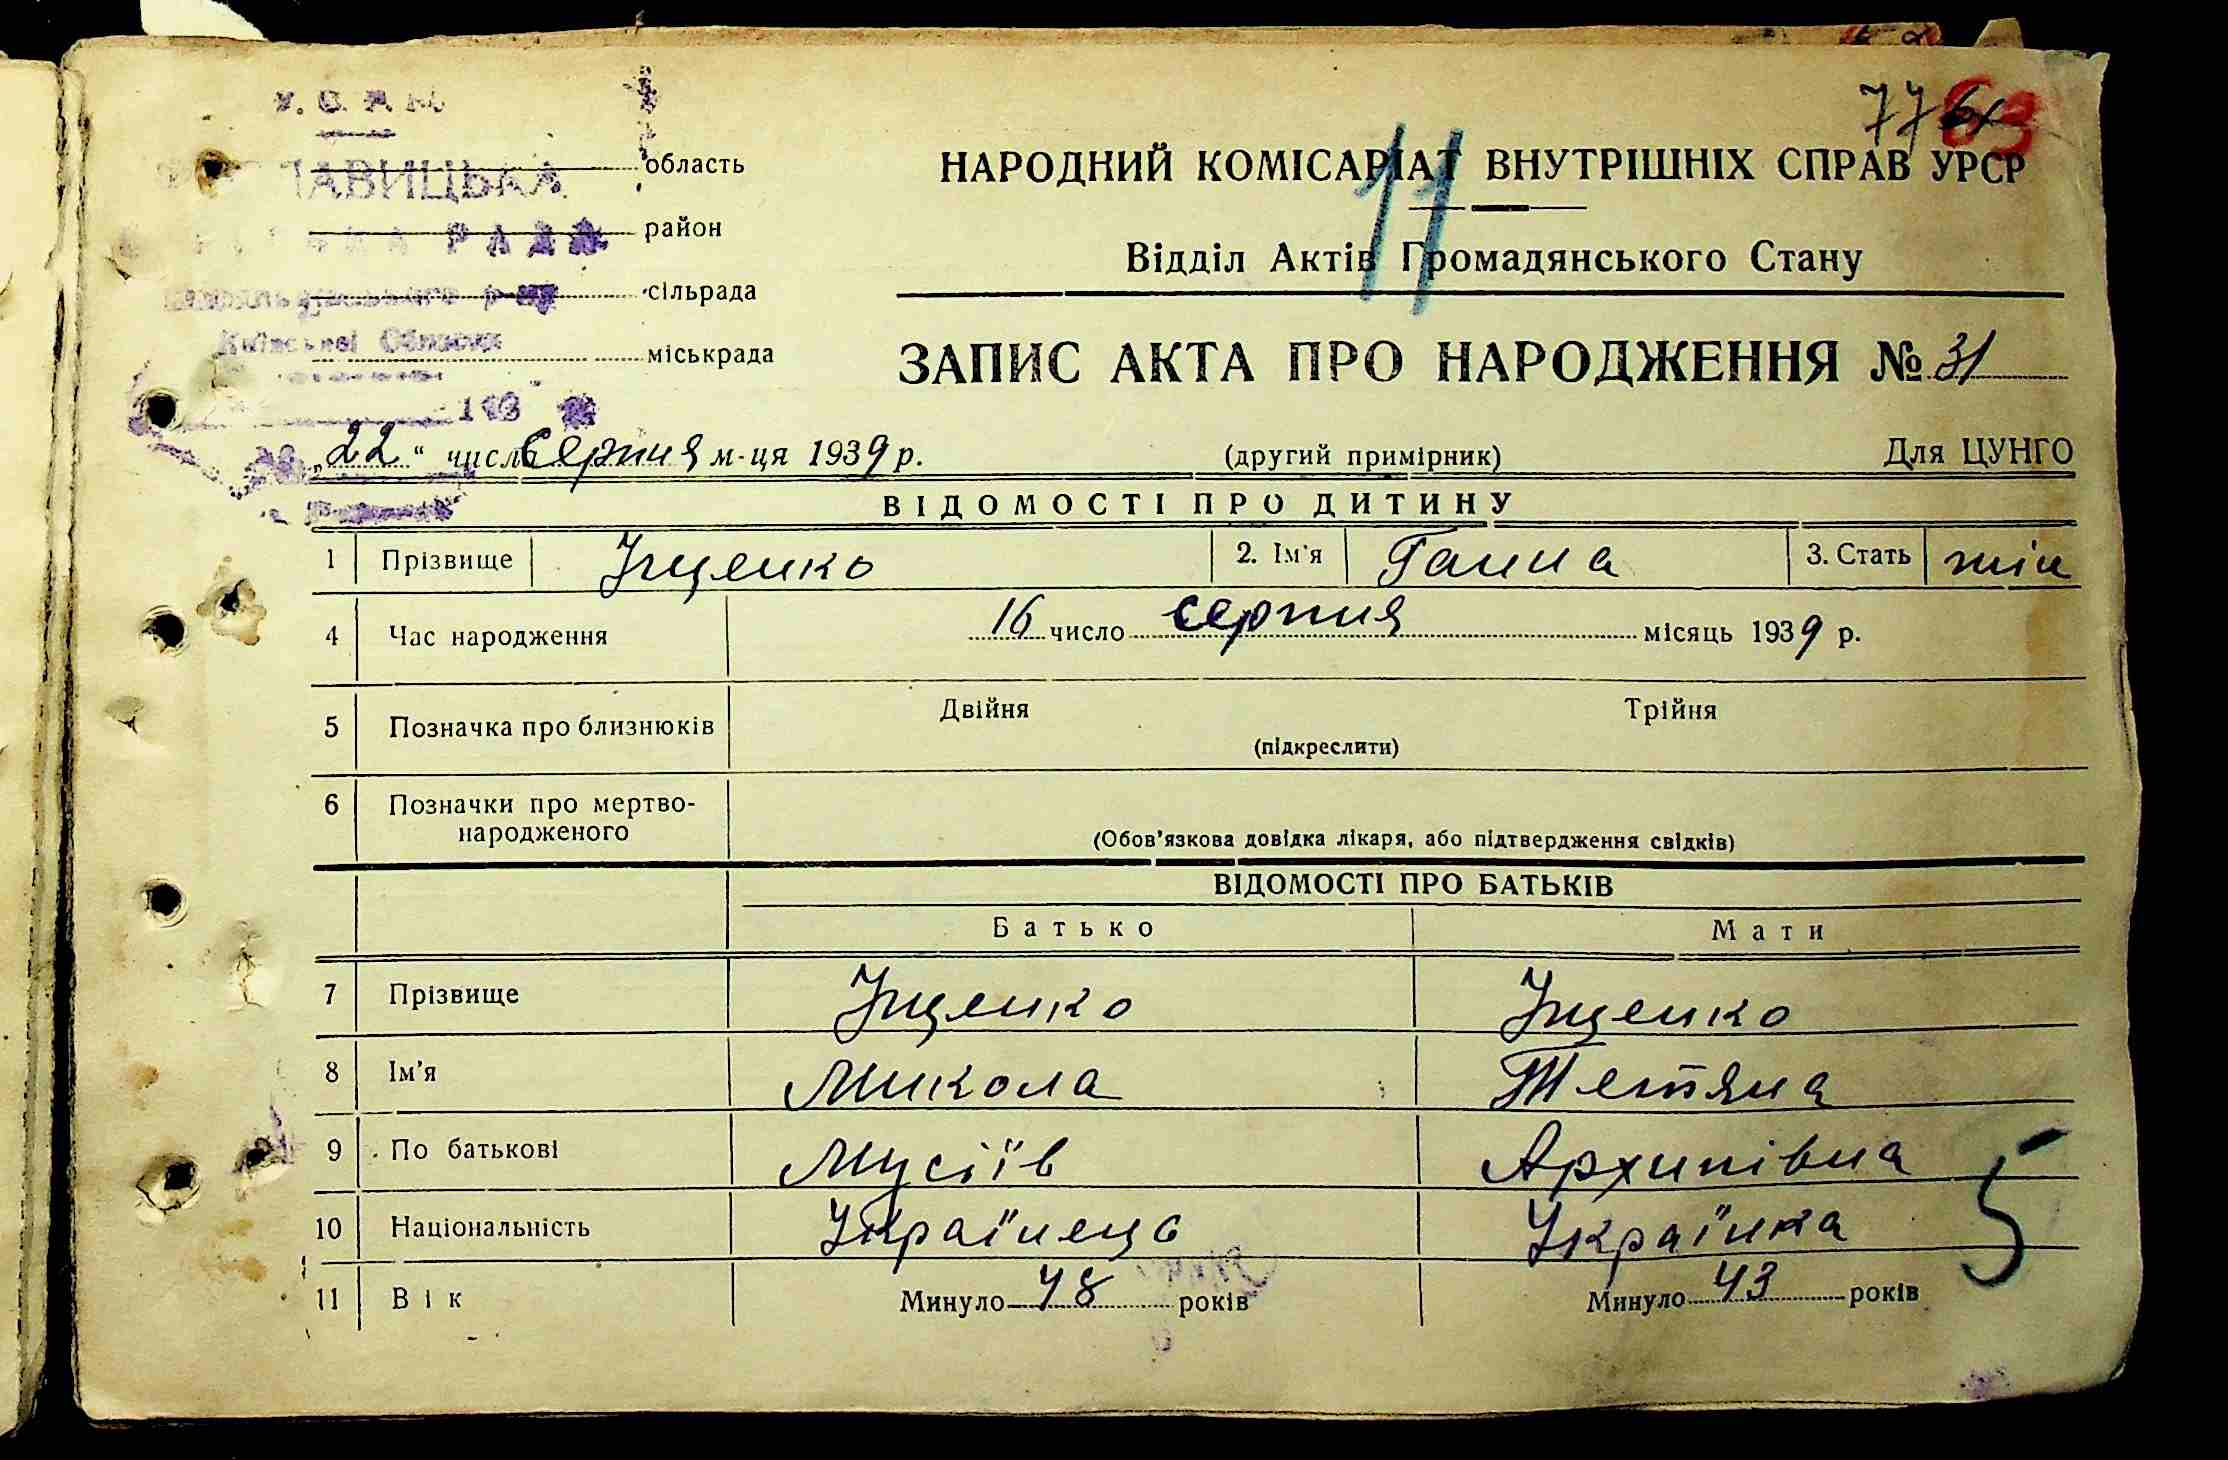 У. С. Р. Р.
область
район
сільрада
Київської Області
міськрада
77 63
НАРОДНИЙ КОМІСАРІАТ ВНУТРІШНІХ СПРАВ УРСР
11
Відділ Актів Громадянського Стану
ЗАПИС АКТА ПРО НАРОДЖЕННЯ № 31
„22“ числа серпня м-ця 1939 р. (другий примірник) Для ЦУНГО
ВІДОМОСТІ ПРО ДИТИНУ
1 Прізвище Іщенко 2. Ім'я Ганна 3. Стать жін
4 Час народження 16 число серпня місяць 1939 р.
5 Позначка про близнюків Двійня Трійня
(підкреслити)
6 Позначки про мертво-
народженого
(Обов'язкова довідка лікаря, або підтвердження свідків)
ВІДОМОСТІ ПРО БАТЬКІВ
Батько Мати
7 Прізвище Іщенко Іщенко
8 Ім'я Микола Тетяна
9 По батькові Мусіїв Архипівна
5
10 Національність Українець Українка
11 Вік Минуло 48 років Минуло 43 років